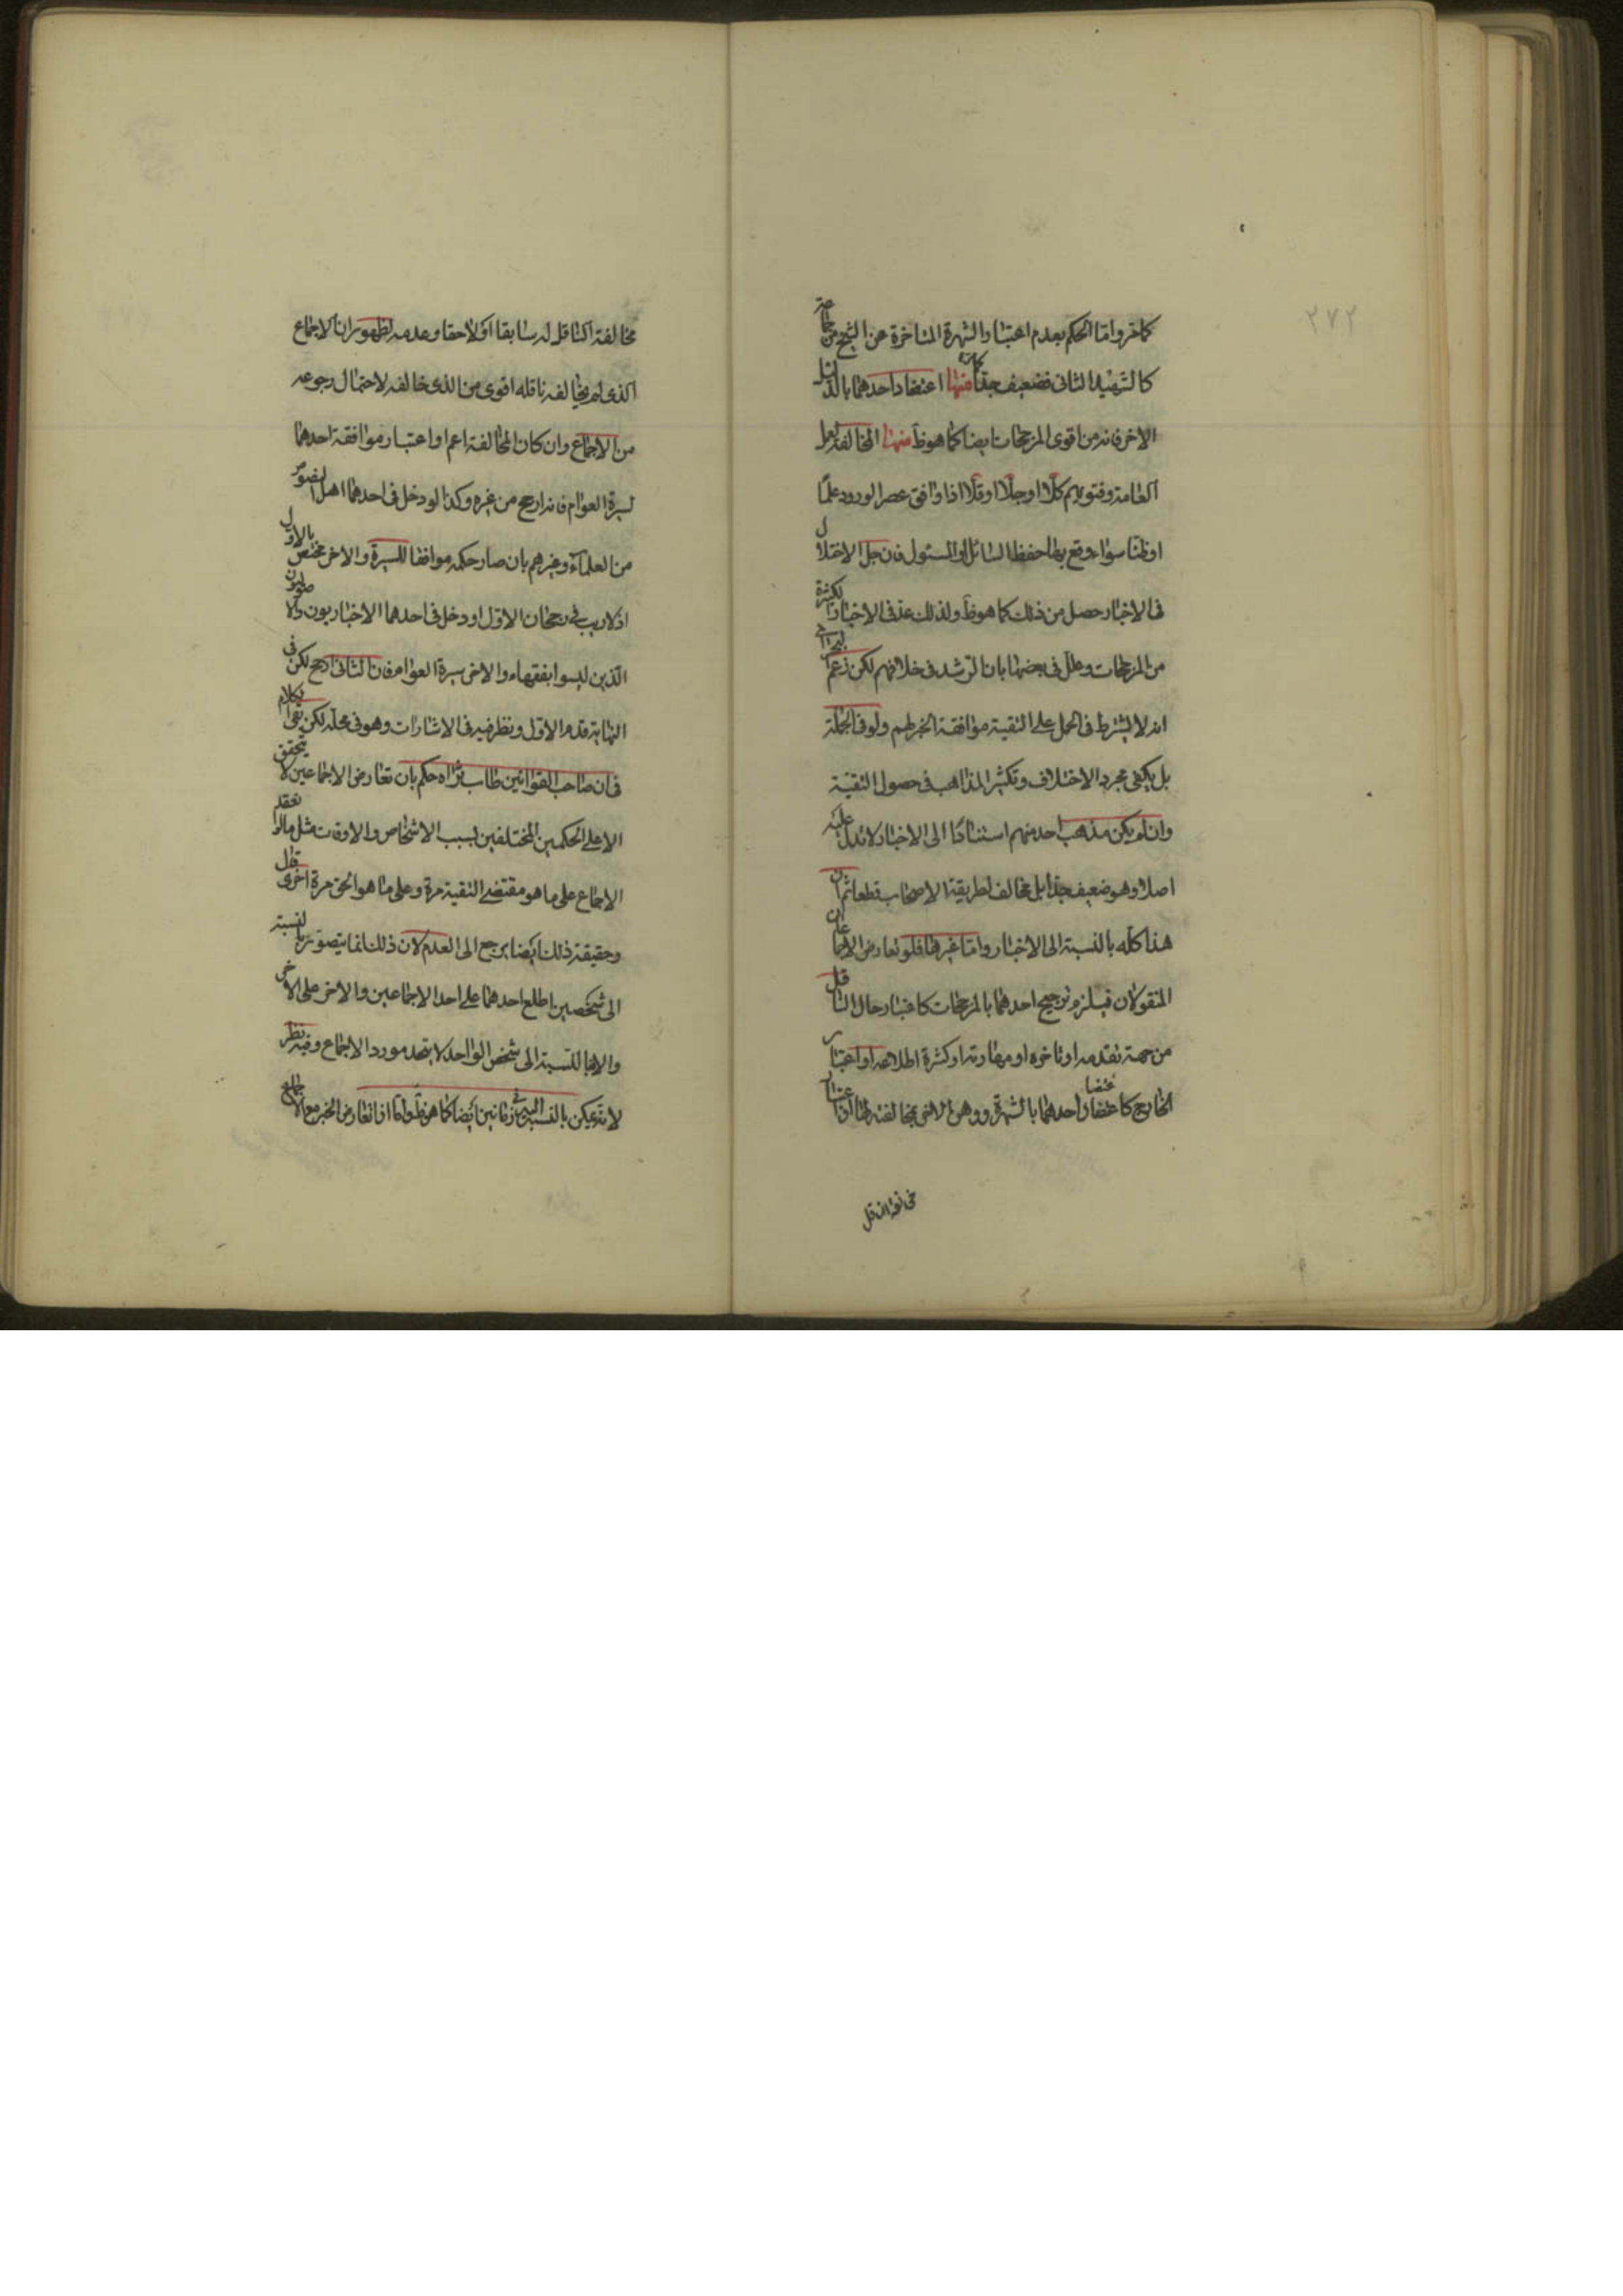 ٢٧٢
كما مر واما الحكم بعدم اعتبار الشهرة المتاخرة عن الشيخ من جماعة
كالشهيد الثاني فضعيف جدا كما مر منها اعتضاد احدهما بالدليل
الاخر فانه من اقوى المرجحات ايضا كما هو ظ منها المخالفة لعمل
العامة وفتويهم كلا او جلا او قلا اذا وافق عصر الورود علما
او ظنا سواء وقع بها حفظ السائل او المسئول فان جل الاختلال
في الاخبار حصل من ذلك كما هو ظ ولذلك عد في الاخبار الكثيرة
من المرجحات وعلل في بعضها بان الرشد في خلافهم لكن زعم البحراني
انه لا يشترط في الحمل على التقية موافقة الخبر لهم ولو في الجملة
بل يكفي مجرد الاختلاف وتكثير المذاهب في حصول التقية
وان لم يكن مذهب احد منهم استنادا الى الاخبار لا تدل عليه
اصلا وهو ضعيف جدا بل مخالف لطريقة الاصحاب قطعا ثم ان
هذا كله بالنسبة الى الاخبار واما غيرها فلو تعارض الاجماعان
المنقولان فيلزم ترجيح احدهما بالمرجحات كاعتبار حال الناقل
من جهة تقدمه او تاخره او مهارته او كثرة اطلاعه او اعتبار
الخارج كاعتضاد احدهما بالشهرة ووهن الاخر بمخالفته لها او اعتبار
مخالفة الناقل
مخالفة الناقل له سابقا او لاحقا وعدمه لظهور ان الاجماع
الذي لم يخالفه ناقله اقوى من الذي خالفه لاحتمال رجوعه
من الاجماع وان كان المخالفة اعم او اعتبار موافقة احدهما
لسيرة العوام فانه ارجح من غيره وكذا لو دخل في احدهما اهل الضور
من العلماء وغيرهم بان صار حكمه موافقا للسيرة والاخر مختص بالاول
اذ لا ريب في رجحان الاول او دخل في احدهما الاخباريون والاصوليون
الذين ليسوا بفقهاء والاخر سيرة العوام فان الثاني ارجح لكن في
النهاية قدم الاول ونظر فيه في الاشارات وهو في محله لكن بقى الكلام
فان صاحب القوانين طاب ثراه حكم بان تعارض الاجماعين لا يتحقق
الا على الحكمين المختلفين بسبب الاشخاص والاوقات مثل ما لو انعقد
الاجماع على ما هو مقتضى التقية مرة وعلى ما هو الحق مرة اخرى قال
وحقيقة ذلك ايضا يرجع الى العدم لان ذلك انما يتصور بالنسبة
الى شخصين اطلع احدهما على احد الاجماعين والاخر على الاخر
والا فبالنسبة الى شخص الواحد لا يتحد مورد الاجماع وفيه نظر
لانه يمكن بالنسبة اليه في زمانين ايضا كما هو ظ واما اذا تعارض الخبر مع الاجماع